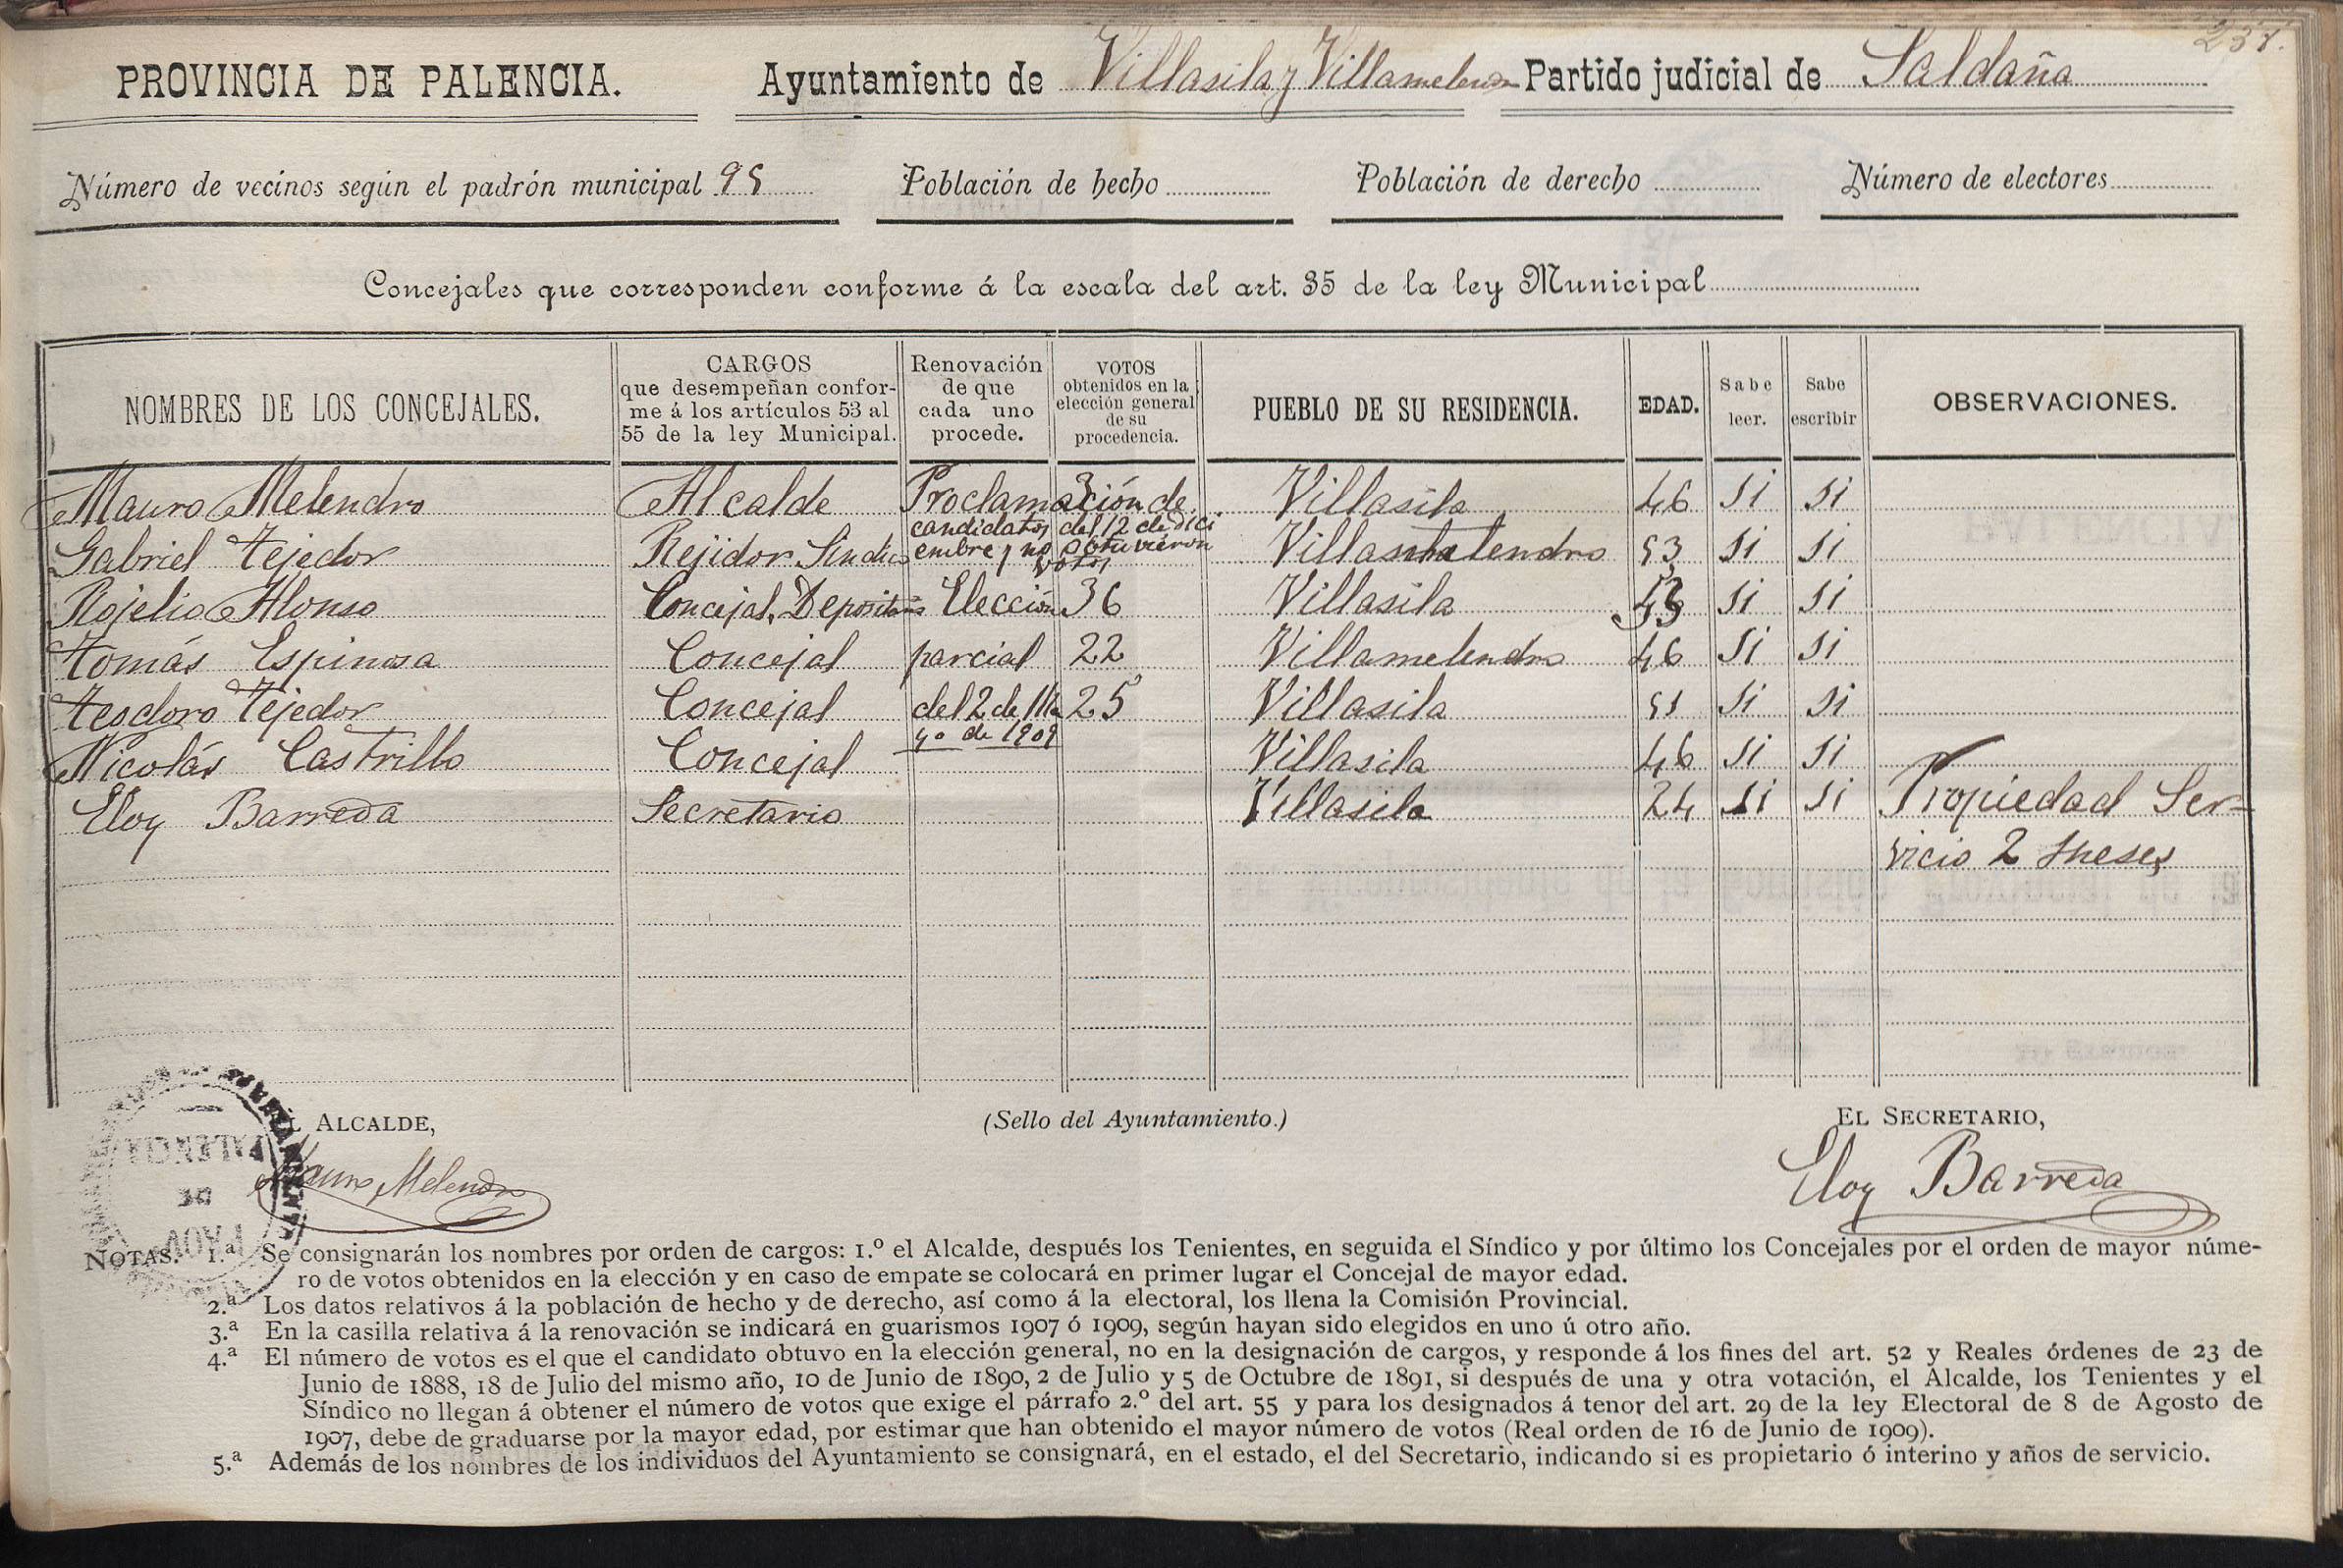 PROVINCIA DE PALENCIA. Ayuntamiento de Villasila y Villamelendro Partido judicial de Saldaña
Número de vecinos según el padrón municipal 95 Población de hecho Población de derecho Número de electores
Concejales que corresponden conforme á la escala del art. 35 de la ley Municipal
NOMBRES DE LOS CONCEJALES.
CARGOS
que desempeñan confor-
me á los artículos 53 al
55 de la ley Municipal.
Renovación
de que
cada uno
procede.
VOTOS
obtenidos en la
elección general
de su
procedencia.
PUEBLO DE SU RESIDENCIA.
EDAD.
Sabe
leer.
Sabe
escribir
OBSERVACIONES.
Mauro Melendro Alcalde Proclamación de Villasila 46 Si Si
candidatos del 12 de Dici
Gabriel Tejedor Rejidor Síndico embre y no obtuvieron Villamelendro 53 Si Si
votos
Rojelio Alonso Concejal, Depositario Elección 36 Villasila Si Si
Tomás Espinosa Concejal parcial 22 Villamelendro 46 Si Si
Teodoro Tejedor Concejal del 2 de Ma 25 Villasila 51 Si Si
yo de 1909
Nicolás Castrillo Concejal Villasila 46 Si Si
Eloy Barreda Secretario Villasila 24 Si Si Propiedad Ser-
vicio 2 meses
ALCALDE, (Sello del Ayuntamiento.) EL SECRETARIO,
Mauro Melendro Eloy Barreda
PALENCIA
DE
PROV
NOTAS. 1.ª Se consignarán los nombres por orden de cargos: 1.º el Alcalde, después los Tenientes, en seguida el Síndico y por último los Concejales por el orden de mayor núme-
ro de votos obtenidos en la elección y en caso de empate se colocará en primer lugar el Concejal de mayor edad.
2.ª Los datos relativos á la población de hecho y de derecho, así como á la electoral, los llena la Comisión Provincial.
3.ª En la casilla relativa á la renovación se indicará en guarismos 1907 ó 1909, según hayan sido elegidos en uno ú otro año.
4.ª El número de votos es el que el candidato obtuvo en la elección general, no en la designación de cargos, y responde á los fines del art. 52 y Reales órdenes de 23 de
Junio de 1888, 18 de Julio del mismo año, 10 de Junio de 1890, 2 de Julio y 5 de Octubre de 1891, si después de una y otra votación, el Alcalde, los Tenientes y el
Síndico no llegan á obtener el número de votos que exige el párrafo 2.º del art. 55 y para los designados á tenor del art. 29 de la ley Electoral de 8 de Agosto de
1907, debe de graduarse por la mayor edad, por estimar que han obtenido el mayor número de votos (Real orden de 16 de Junio de 1909).
5.ª Además de los nombres de los individuos del Ayuntamiento se consignará, en el estado, el del Secretario, indicando si es propietario ó interino y años de servicio.